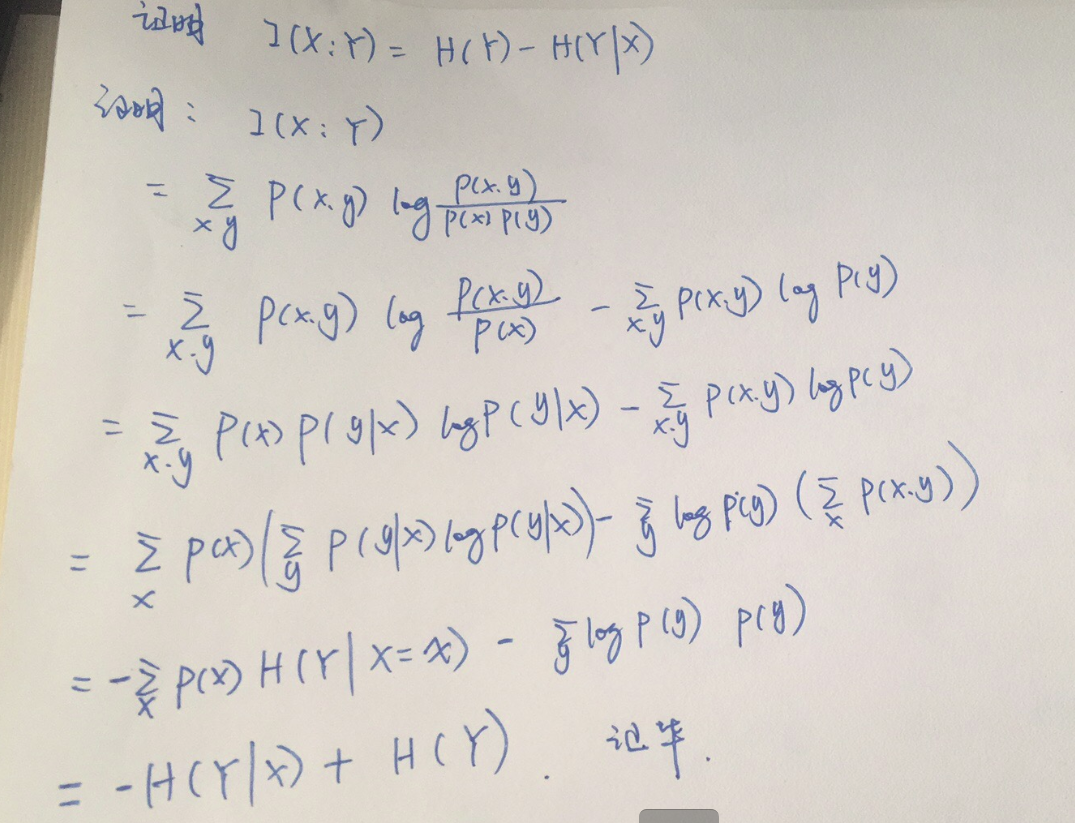 证明 I(X:Y) = H(Y) - H(Y|X)
证明: I(X:Y)
= Σ_{x.y} P(x.y) log \frac{P(x.y)}{P(x) P(y)}
= Σ_{x.y} P(x.y) log \frac{P(x.y)}{P(x)} - Σ_{x.y} P(x.y) log P(y)
= Σ_{x.y} P(x) P(y|x) log P(y|x) - Σ_{x.y} P(x.y) log P(y)
= Σ_x P(x) (Σ_y P(y|x) log P(y|x)) - Σ_y log P(y) (Σ_x P(x.y))
= -Σ_x P(x) H(Y|X=x) - Σ_y log P(y) P(y)
= -H(Y|X) + H(Y). 证毕.